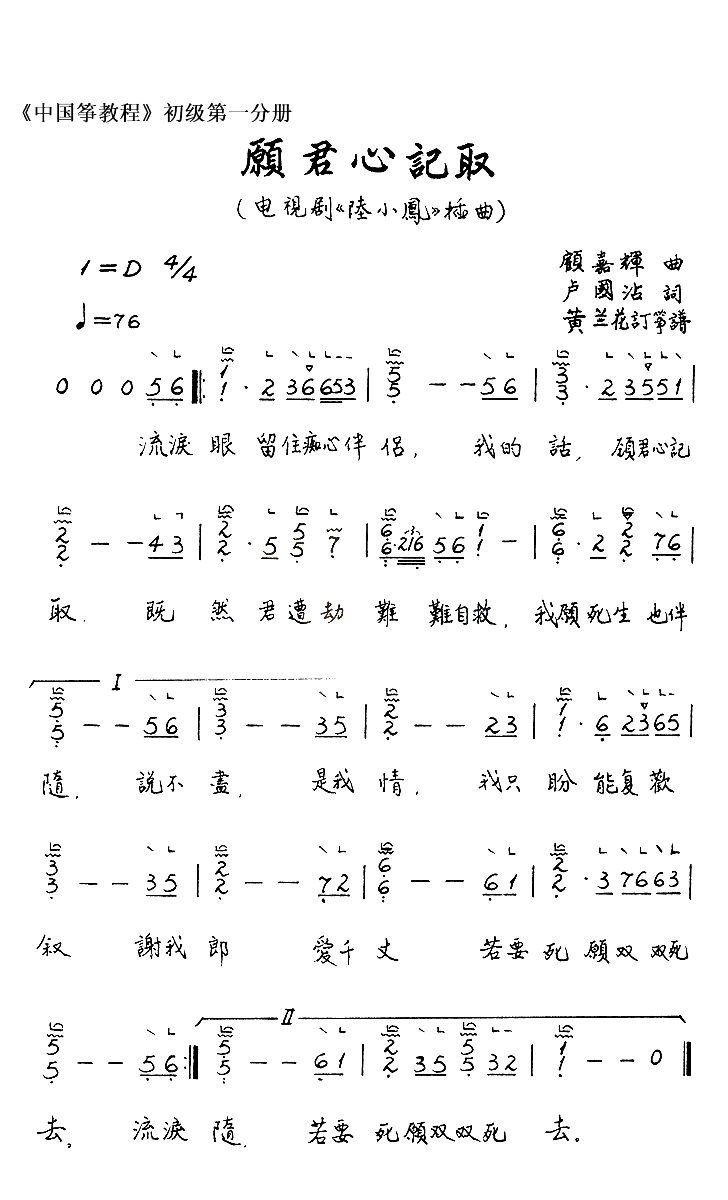 《中国筝教程》初级第一分册
願君心記取
(电視剧《陸小鳳》插曲)
1=D 4/4
顧嘉輝 曲
卢國沾 詞
♩=76
黄兰花訂筝譜
0 0 0 5 6 1 1 · 2 3 6 6 5 3 | 5 5 - - 5 6 | 3 3 · 2 3 5 5 1 |
流淚眼 留住痴心伴侣, 我的話, 願君心記
2 2 - - 4 3 | 2 2 · 5 5 5 7 | 6 6 · 2 1 6 5 6 1 1 - | 6 6 · 2 2 2 7 6 |
取. 既然君遭劫難 難自救, 我願死生也伴
I
5 5 - - 5 6 | 3 3 - - 3 5 | 2 2 - - 2 3 | 1 1 · 6 2 3 6 5 |
隨. 說不盡, 是我情, 我只盼能复歡
3 3 - - 3 5 | 2 2 - - 7 2 | 6 6 - - 6 1 | 2 2 · 3 7 6 6 3 |
叙 謝我郎 愛千丈 若要死願双双死
II
5 5 - - 5 6 :‖ 5 5 - - 6 1 | 2 2 3 5 5 5 3 2 | 1 1 - - 0 ‖
去。 流淚隨, 若要死願双双死 去。